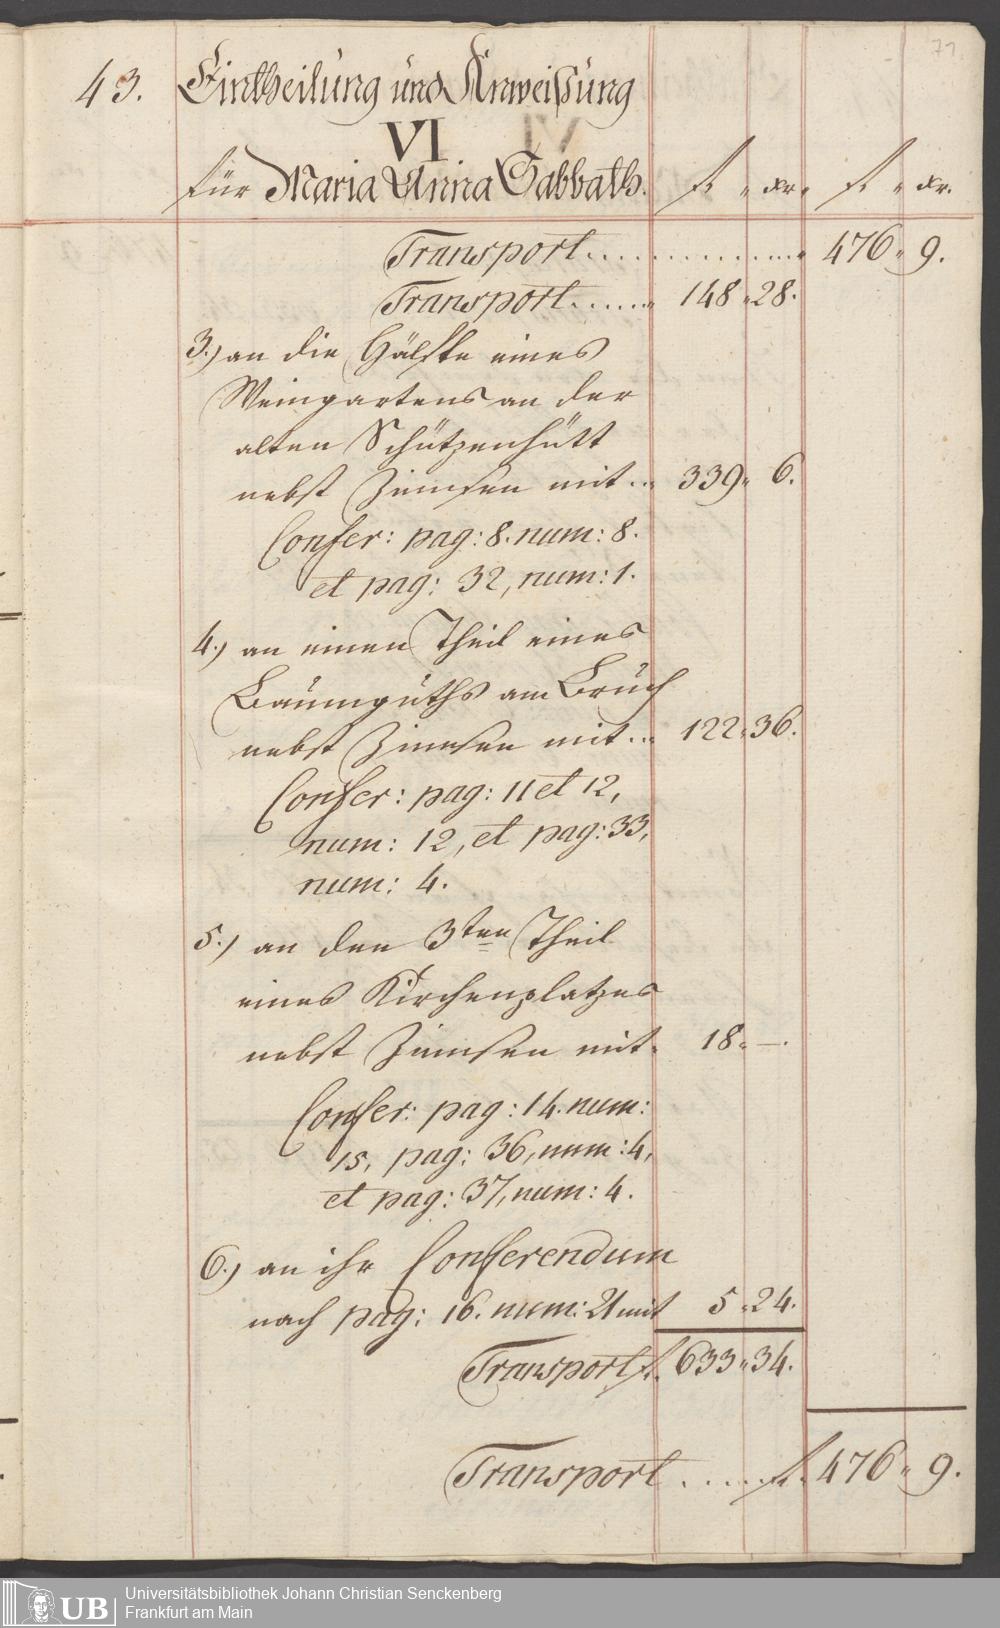 71.
43. Eintheilung und Anweißung
VI IV
für Maria Anna Sabbath. fl. " xr. " fl. " xr.
Transport............. " 476 " 9.
Transport...... " 148 " 28.
3.) an die Hälfte eines
Weingartens an der
alten Schützenhütt
nebst Zinnsen mit... " 339 " 6.
Confer: pag: 8. num: 8.
et pag: 32, num: 1.
4.) an einen Theil eines
Baumguths am Bruch
nebst Zinnsen mit... " 122 " 36.
Confer: pag: 11 et 12,
num: 12, et pag: 33,
num: 4.
5.) an den 3ten Theil
eines Kirchenplatzes
nebst Zinnsen mit " 18 " —.
Confer: pag: 14. num:
15, pag: 36, num: 4,
et pag: 37, num: 4.
6.) an ihr Conferendum
nach pag: 16. num: 21 mit 5 " 24.
Transport fl. 633 " 34.
Transport ..... fl. 476 " 9.
UB Universitätsbibliothek Johann Christian Senckenberg
Frankfurt am Main